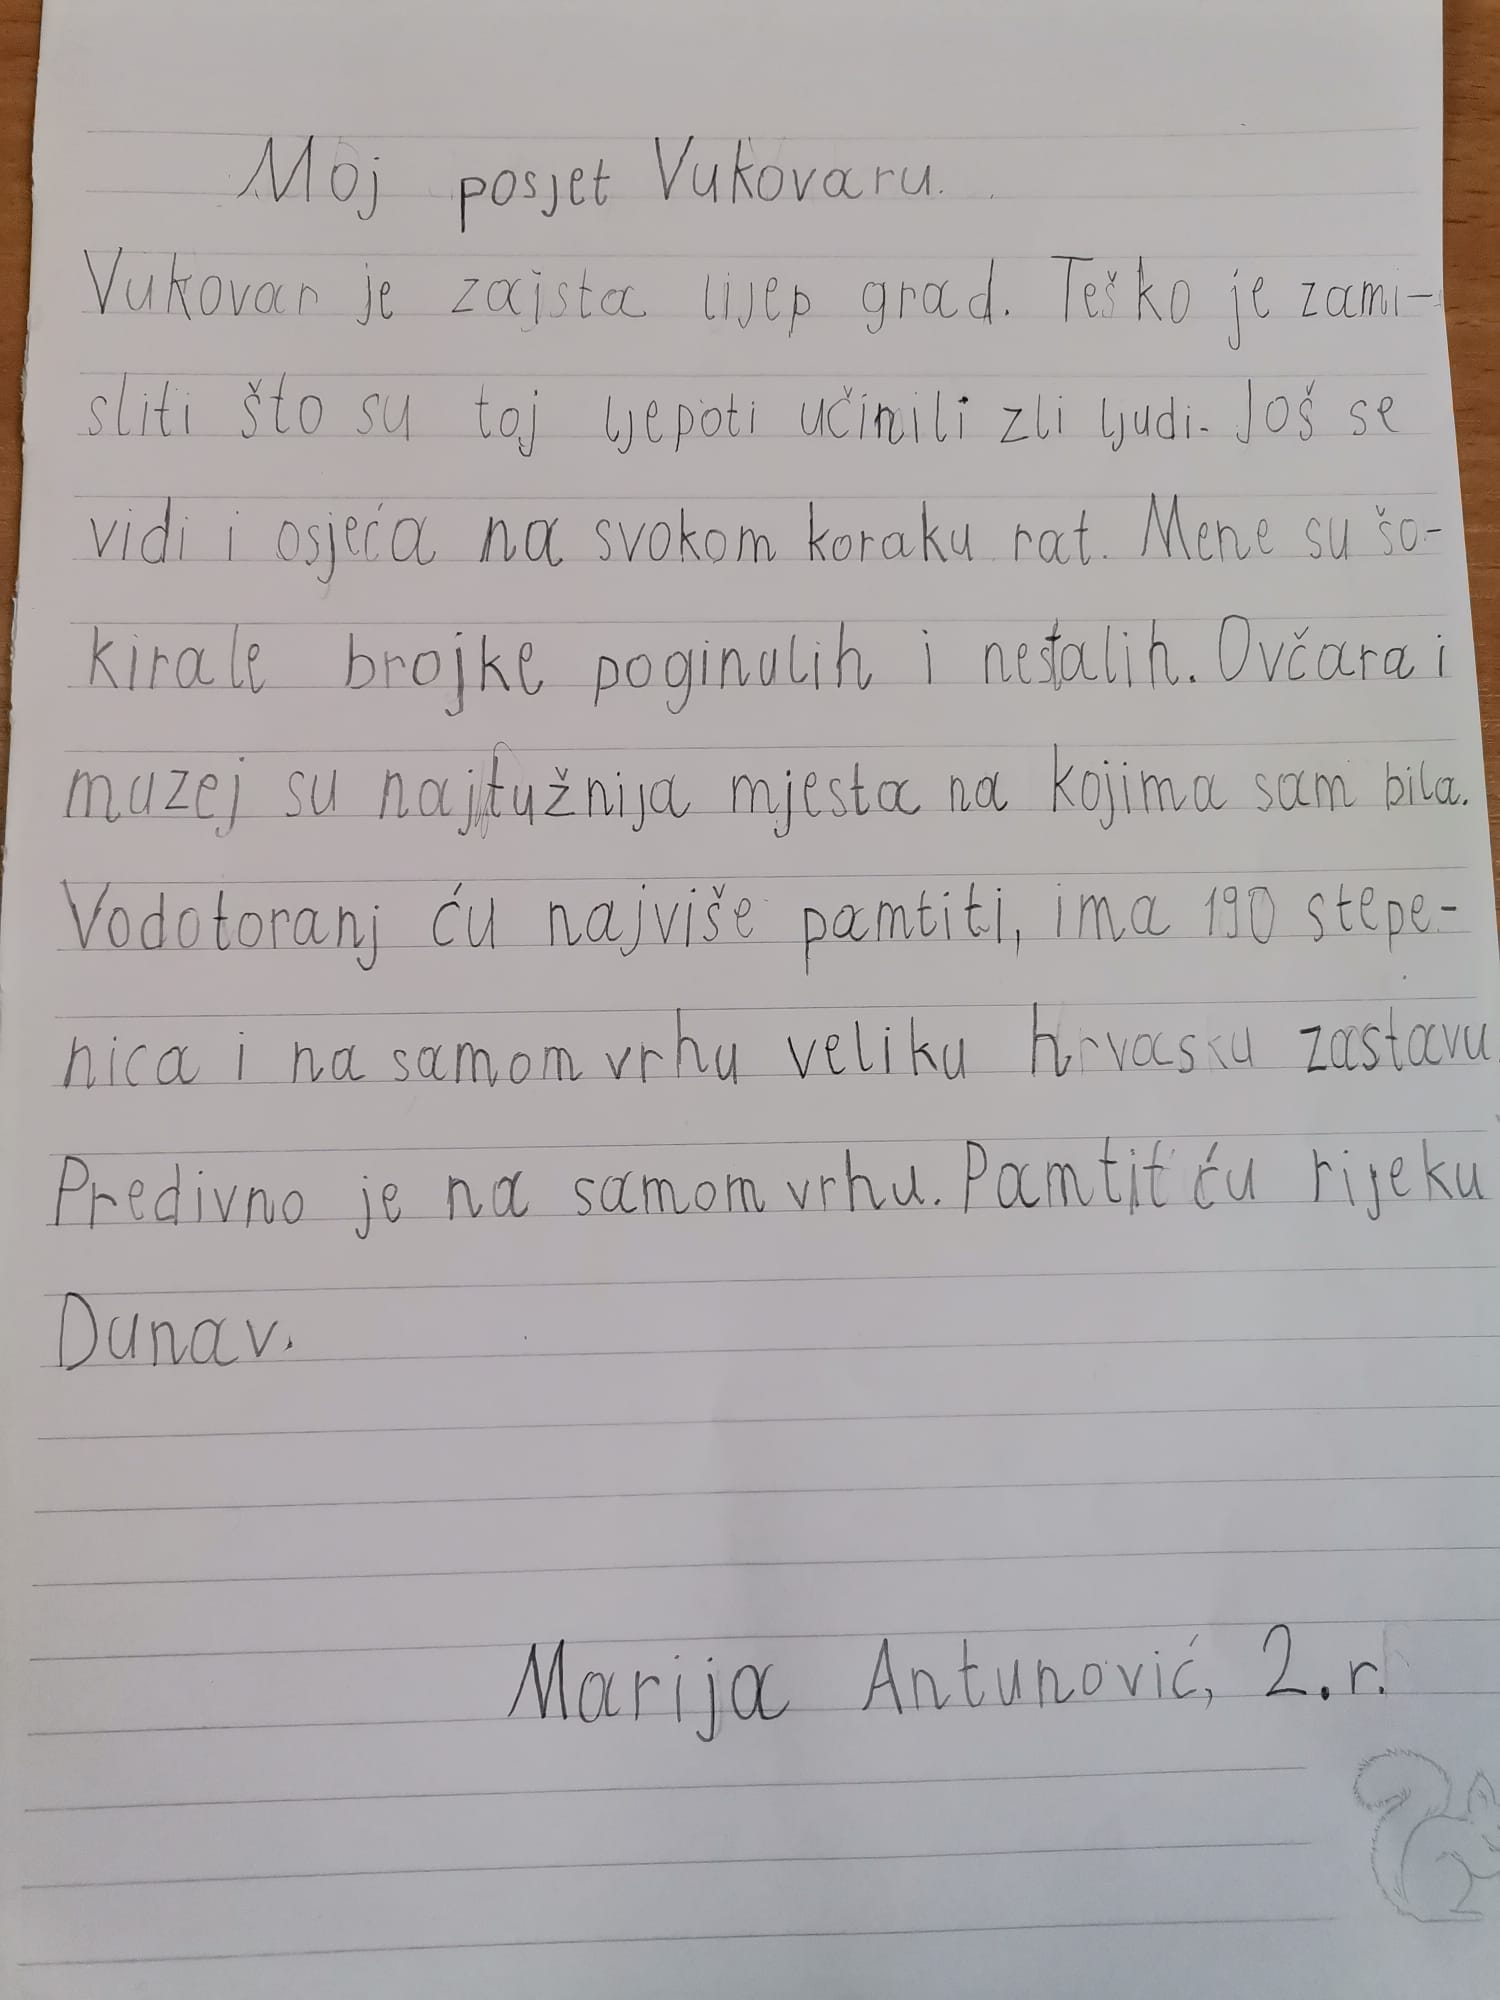 Moj posjet Vukovaru.
Vukovar je zaista lijep grad. Teško je zami-
sliti što su toj ljepoti učinili zli ljudi. Još se
vidi i osjeća na svokom koraku rat. Mene su šo-
kirale brojke poginulih i nestalih. Ovčara i
muzej su najtužnija mjesta na kojima sam bila.
Vodotoranj ću najviše pamtiti, ima 190 stepe-
nica i na samom vrhu veliku hrvasku zastavu.
Predivno je na samom vrhu. Pamtit ću rijeku
Dunav.
Marija Antunović, 2.r.